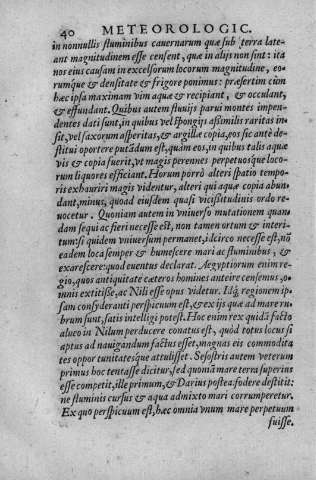 40 METEOROLOGIC.
in nonnullis fluminibus cauernarum quæ sub terra late-
ant magnitudinem esse censent, quæ in alijs non sint: ita
nos eius causam in excelsorum locorum magnitudine, eo-
rumque & densitate & frigore ponimus: præsertim cùm
hæc ipsa maximam vim aquæ & recipiant, & occulant,
& effundant. Quibus autem fluuijs parui montes impen-
dentes dati sunt, in quibus vel spongijs assimilis raritas in-
sit, vel saxorum asperitas, & argillæ copia, eos sic antè de-
stitui oportere putãdum est, quàm eos, in quibus talis aquæ
vis & copia fuerit, vt magis perennes perpetuosque loco-
rum liquores efficiant. Horum porrò alteri spatio tempo-
ris exhauriri magis videntur, alteri qui aquæ copia abun-
dant, minus, quoad eiusdem quasi vicissitudinis ordo re-
uocetur. Quoniam autem in vniuerso mutationem quan-
dam sequi ac fieri necesse est, non tamen ortum & interi-
tum: si quidem vniuersum permanet, idcirco necesse est, nõ
eadem loca semper & humescere mari ac fluminibus, &
exarescere: quod euentus declarat. Aegyptiorum enim re-
gio, quos antiquitate cæteros homines anteire censemus, o-
mnis extitisse, ac Nili esse opus videtur. Idq́; regionem ip-
sam consyderanti perspicuum est, & ex ijs quæ ad mare ru-
brum sunt, satis intelligi potest. Hoc enim rex quidã facto
alueo in Nilum perducere conatus est, quòd totus locus si
aptus ad nauigandum factus esset, magnas eis commodita
tes opportunitatesque attulisset. Sesostris autem veterum
primus hoc tentasse dicitur, sed quoniã mare terra superius
esse competit, ille primum, & Darius postea: fodere destitit:
ne fluminis cursus & aqua admixto mari corrumperetur.
Ex quo perspicuum est, hæc omnia vnum mare perpetuum
fuisse.